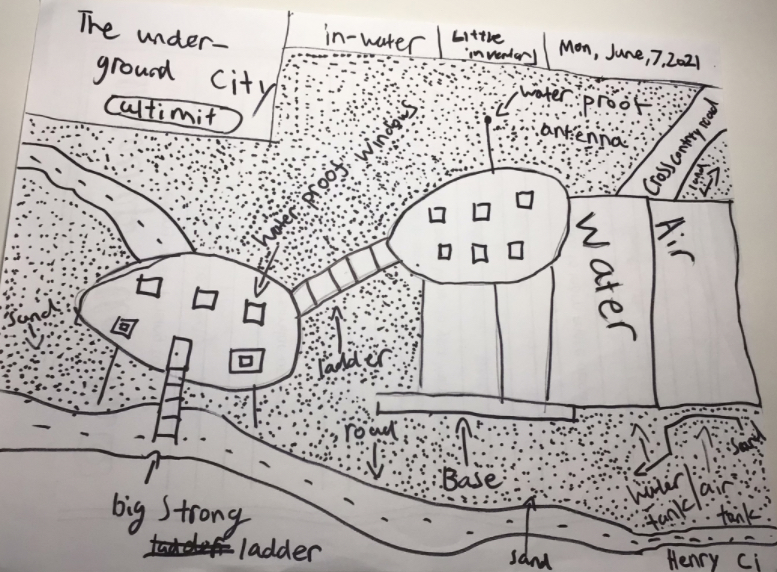 The under-
ground City
Cultimit
in-water
Little
inventors
Mon, June, 7, 2021
water proof
antenna
Cross country road
sand
water proof windows
Water
Air
sand
ladder
road
Base
sand
water
tank/air
tank
big Strong
ladder
sand
Henry Ci